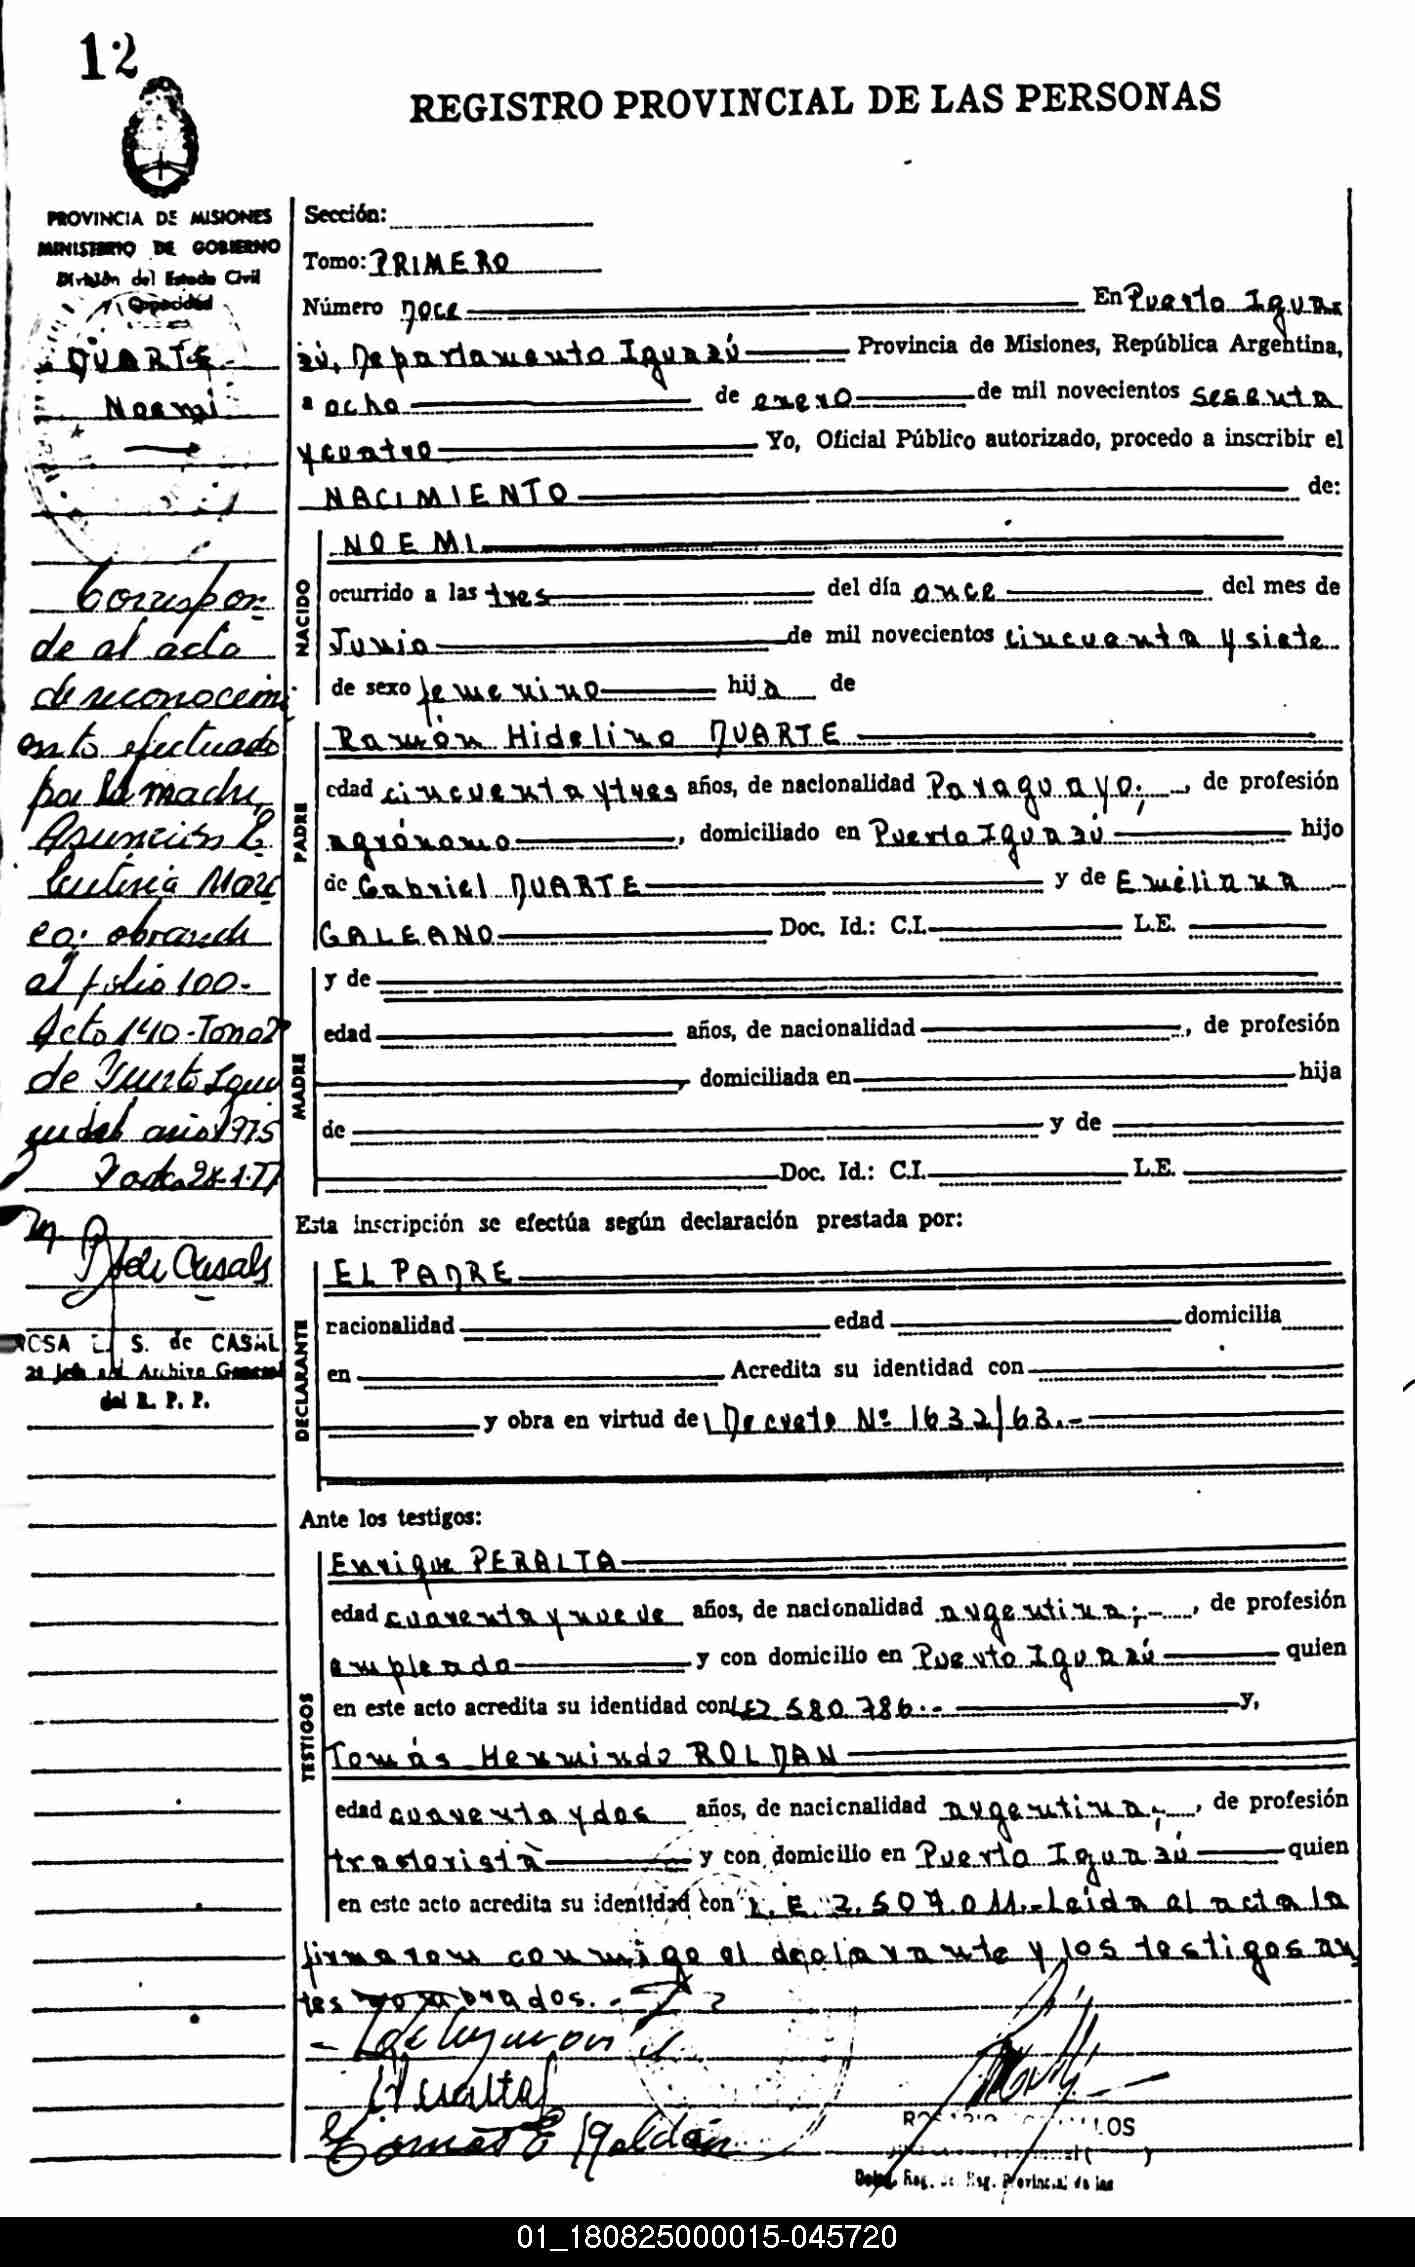 12
REGISTRO PROVINCIAL DE LAS PERSONAS
PROVINCIA DE MISIONES
MINISTERIO DE GOBIERNO
División del Estado Civil
y Capacidad
DUARTE
Noemi
Correspon-
de al acta
de reconocimi
ento efectuado
por la madre,
Asunción
obrando
al folio 100-
Acto 140-Tomo 2º
de Puerto Igua
zu del año 1975
de Casals
ROSA E. S. de CASAL
2ª Jefe del Archivo General
del R. P. P.
Sección:
Tomo: PRIMERO
Número Doce En Puerto Igua
zú, Departamento Iguazú Provincia de Misiones, República Argentina,
a ocho de enero de mil novecientos sesenta
y cuatro Yo, Oficial Público autorizado, procedo a inscribir el
NACIMIENTO de:
NACIDO
NOEMI
ocurrido a las tres del día once del mes de
Junio de mil novecientos cincuenta y siete
de sexo femenino hija de
PADRE
Ramón Hidelino DUARTE
edad cincuenta y tres años, de nacionalidad Paraguayo;, de profesión
agrónomo, domiciliado en Puerto Iguazú hijo
de Gabriel DUARTE y de Emiliana
GALEANO Doc. Id.: C.I. L.E.
MADRE
y de
edad años, de nacionalidad , de profesión
, domiciliada en hija
de y de
Doc. Id.: C.I. L.E.
Esta inscripción se efectúa según declaración prestada por:
DECLARANTE
EL PADRE
nacionalidad edad domicilia
en Acredita su identidad con
y obra en virtud de Decreto Nº 1632/63.-
Ante los testigos:
TESTIGOS
Enrique PERALTA
edad cuarenta y nueve años, de nacionalidad argentina;-, de profesión
empleado y con domicilio en Puerto Iguazú quien
en este acto acredita su identidad con 580.786.- y,
Tomás Hermindo ROLDAN
edad cuarenta y dos años, de nacionalidad argentina;-, de profesión
y con domicilio en Puerto Iguazú quien
en este acto acredita su identidad con L.E. 2.507.011.- Leida el acta la
firmaron conmigo el declarante y los testigos an
tes nombrados.-
Peralta
Tomas E Roldán
Deleg. Reg. de Reg. Provincial de las
01_180825000015-045720